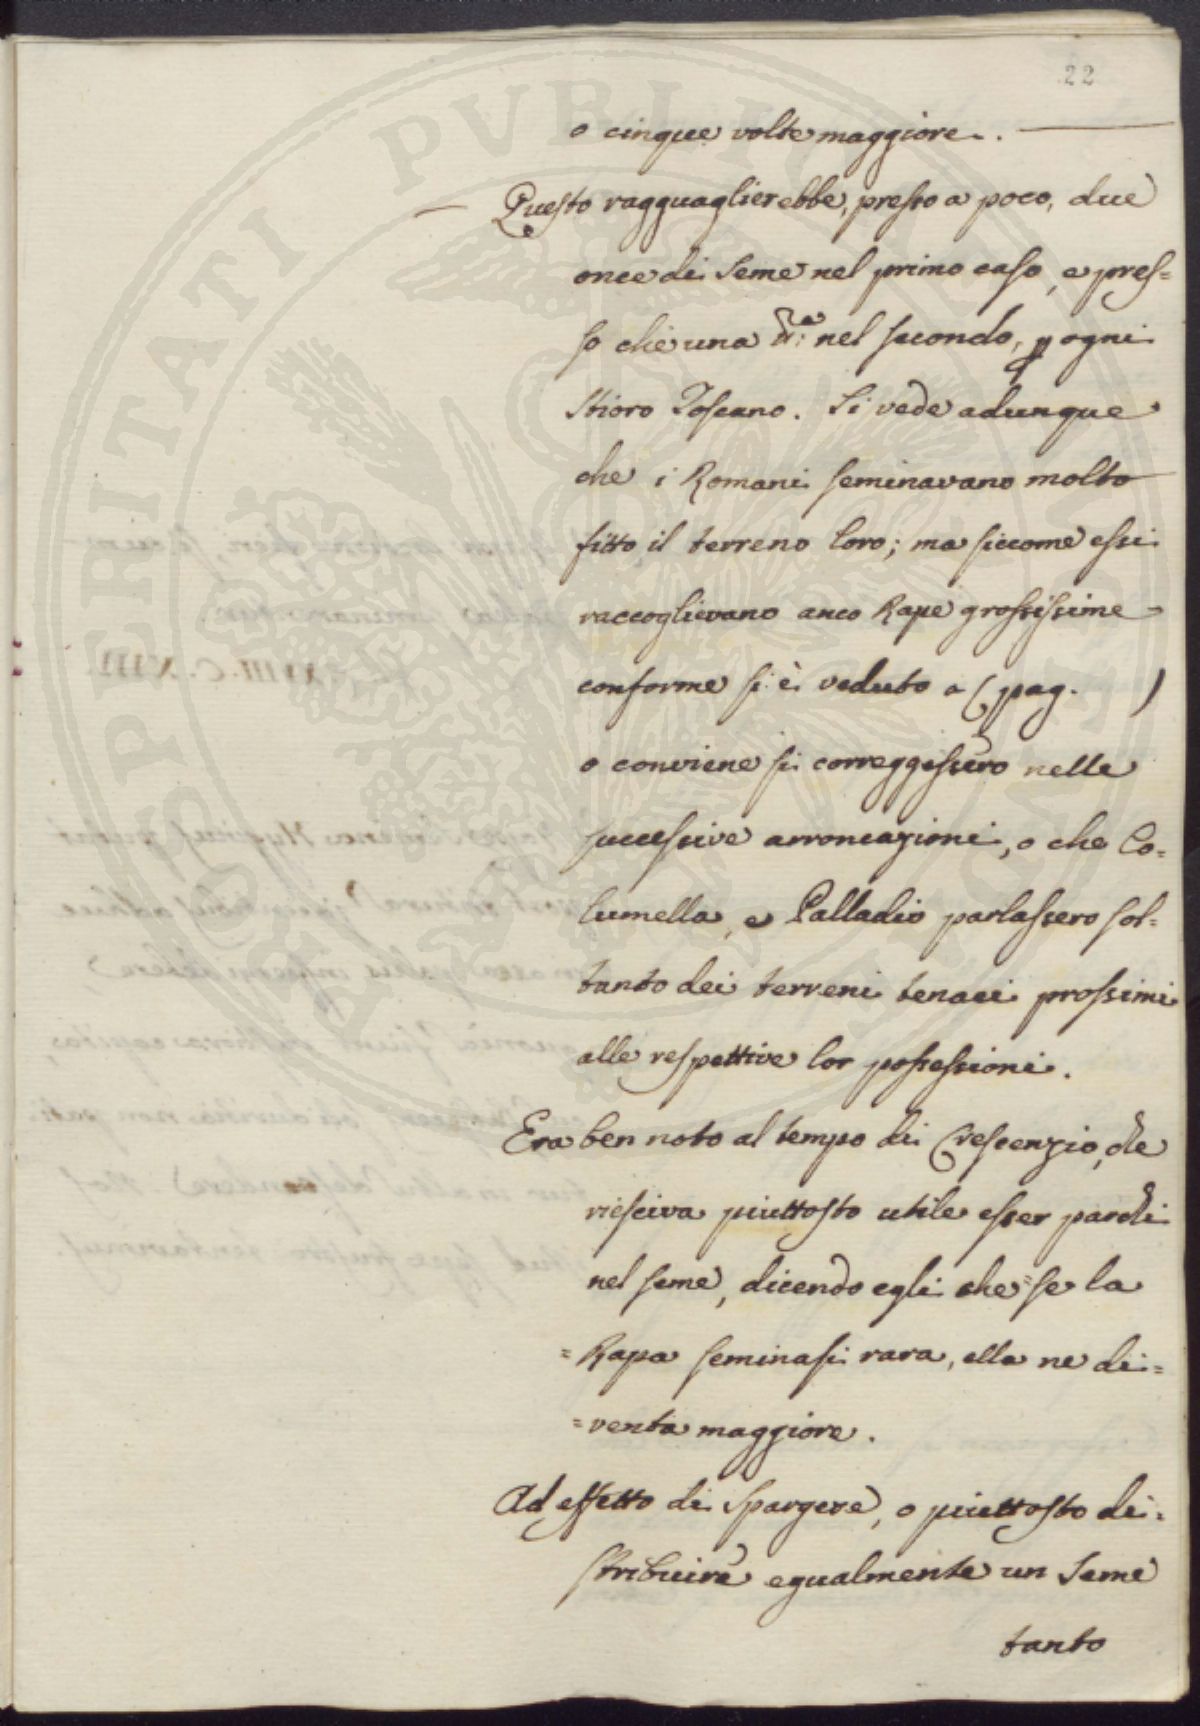 22
o cinque volte maggiore.
Questo ragguaglierebbe, presso a poco, due
once di seme nel primo caso, e pres=
so che una nel secondo, ogni
stioro Toscano. Si vede adunque
che i Romani seminavano molto
fitto il terreno loro; ma siccome essi
raccoglievano anco Rape grossissime
conforme si è veduto a (pag. )
o conviene si correggessero nelle
successive arroncazioni, o che Co=
lumella, e Palladio parlassero sol=
tanto dei terreni tenaci prossimi
alle respettive lor possessioni.
Era ben noto al tempo di Crescenzio, che
riesciva piuttosto utile esser parchi
nel seme, dicendo egli che = se la
= Rapa seminasi rara, ella ne di=
= venta maggiore.
Ad effetto di spargere, o piuttosto di=
stribuire egualmente un seme
tanto
PROSPERITATI PVBLICAE